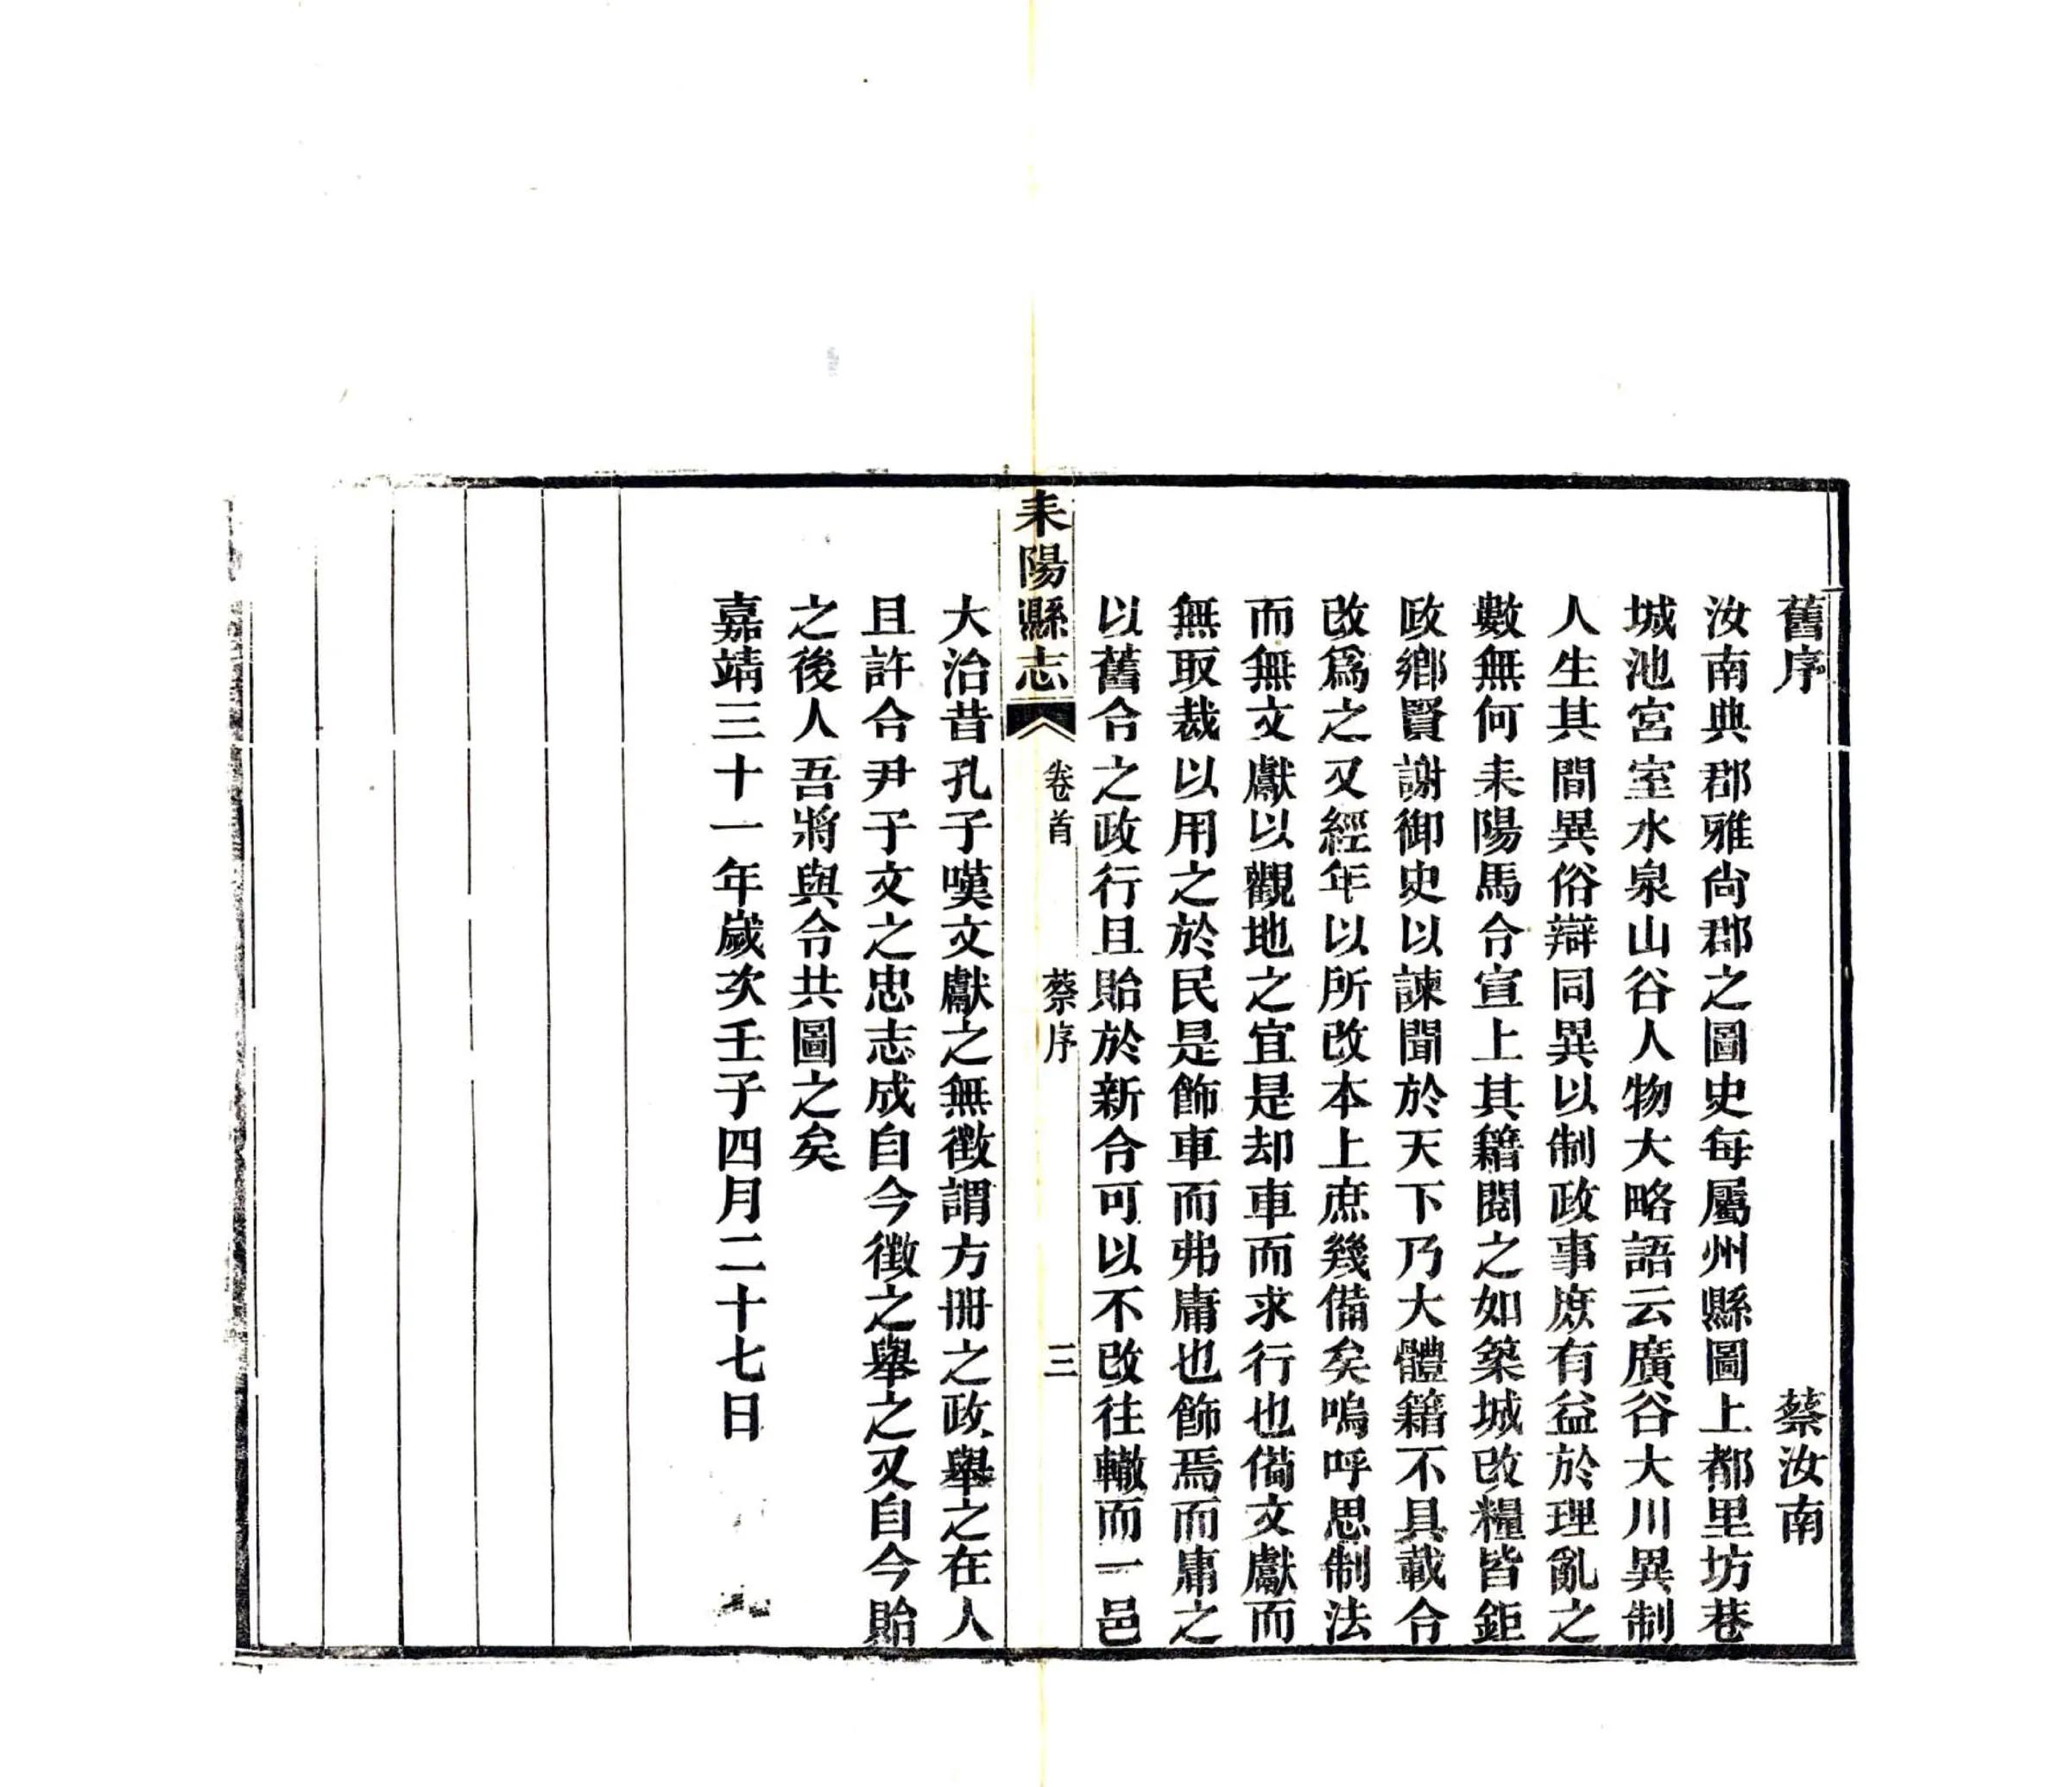 舊序　蔡汝南
汝南典郡雅尙郡之圖史每屬州縣圖上都里坊巷
城池宮室水泉山谷人物大略語云廣谷大川異制
人生其間異俗辯同異以制政事庶有益於理亂之
數無何耒陽馬令宣上其籍閱之如築城改糧皆鉅
政鄕賢謝御史以諫聞於天下乃大體籍不具載令
改爲之又經年以所改本上庶幾備矣嗚呼思制法
而無文獻以觀地之宜是却車而求行也備文獻而
無取裁以用之於民是飾車而弗庸也飾焉而庸之
以舊令之政行且貽於新令可以不改往轍而一邑
耒陽縣志　卷首　蔡序　三
大治昔孔子嘆文獻之無徵謂方冊之政舉之在人
且許令尹子文之忠志成自今徵之舉之又自今貽
之後人吾將與令共圖之矣
嘉靖三十一年歲次壬子四月二十七日